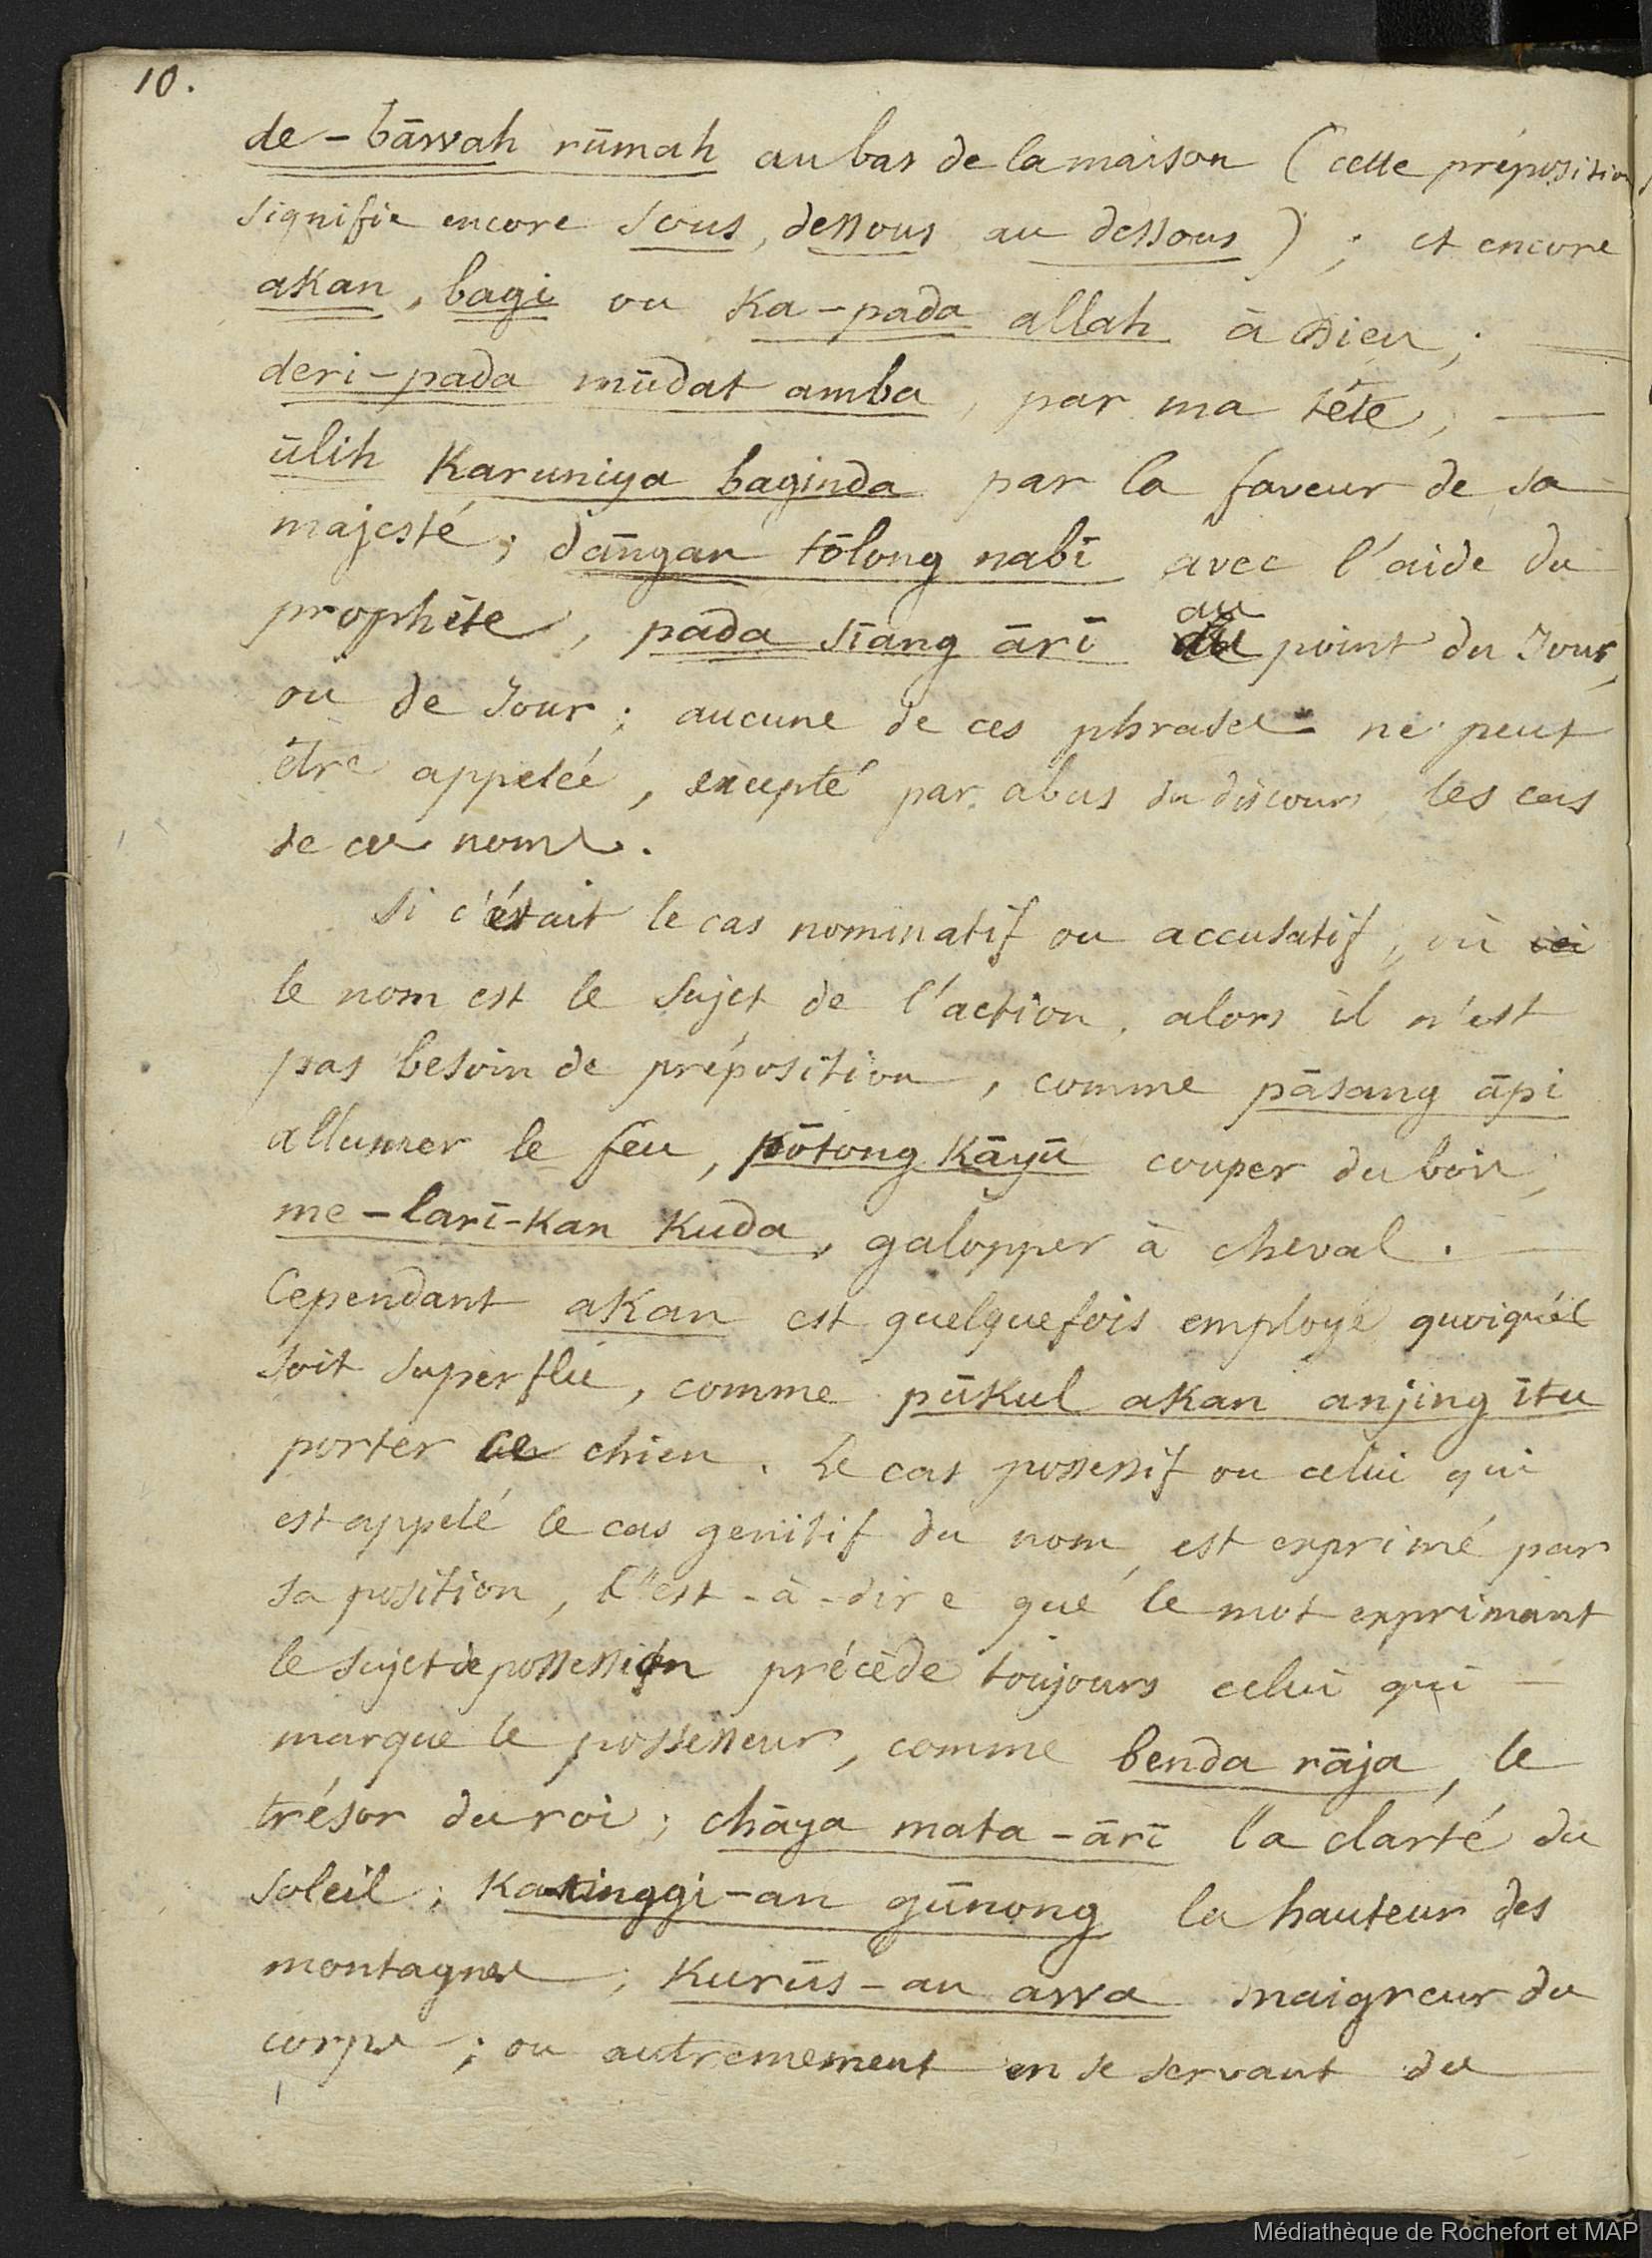 10.
de-bāwah rūmah au bas de la maison (cette préposition
signifie encore sous, dessous au dessous); et encore
akan, bagi ou Ka-pada allah à Dieu;
deri-pada mūdat amba, par ma tête,
ūlih Karuniya baginda par la faveur de sa
majesté; dāngan tōlong nabī avec l'aide du
prophète, pada sīang ārī au point du Jour,
ou de Jour; aucune de ces phrases ne peut
être appeléé, excepté par abus du discours, les cas
de ces noms.
Si c'était le cas nominatif ou accusatif, où
le nom est le sujet de l'action, alors il n'est
pas besoin de préposition, comme pāsang āpi
allumer le feu, pōtong Kāyū couper du bois,
me-larī-Kan Kuda, galopper à cheval.
Cependant aKan est quelquefois employé quoiqu'il
soit superflu, comme pūKul aKan anjing ītu
porter ce chien. Le cas possessif ou celui qui
est appelé le cas genitif du nom, est exprimé par
sa position, c'est-à-dire que le mot exprimant
le sujet de possession précède toujours celui qui
marque le possesseur, comme benda rāja, le
trésor du roi; chāya mata-ārī la clarté du
soleil; Katinggi-an gūnong la hauteur des
montagnes; Kurūs-an awa maigreur du
corps; ou autremement en se servant de
Médiathèque de Rochefort et MAP